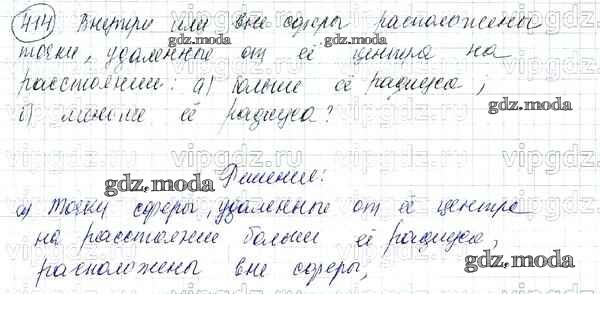 414 Внутри или вне сферы расположены
точки, удаленные от её центра на
расстояние: а) больше её радиуса;
б) меньше её радиуса?
Решение:
а) точки сферы, удаленные от её центра
на расстояние больше её радиуса,
расположены вне сферы,
gdz.moda
gdz.moda
gdz.moda
gdz.moda
gdz.moda
gdz.moda
gdz.moda
vipgdz.ru
vipgdz.ru